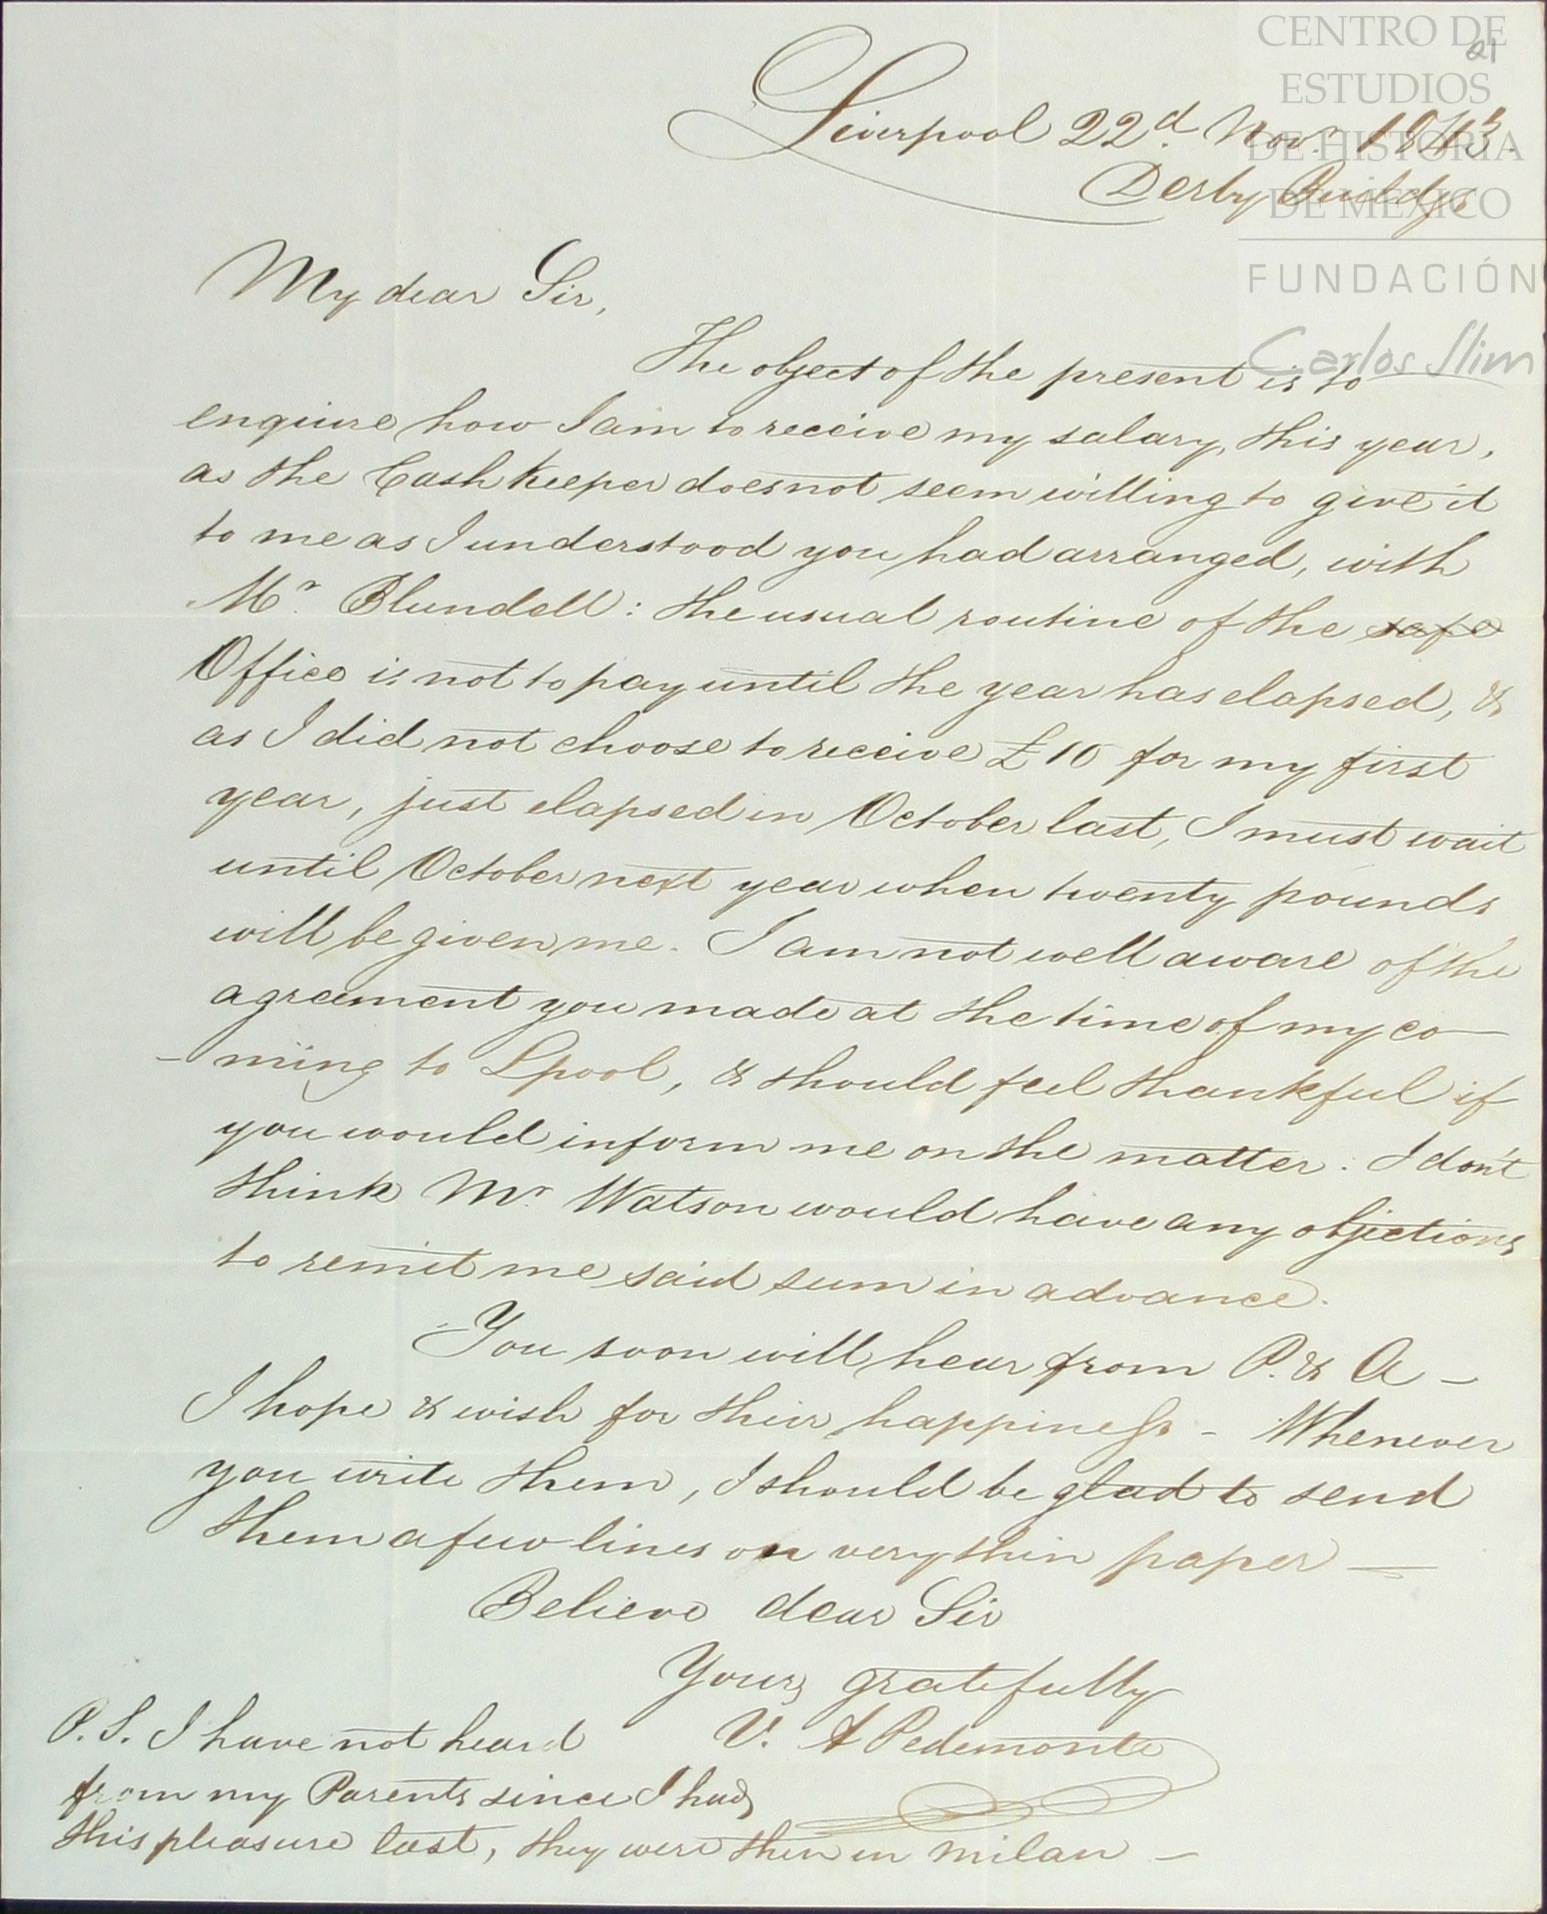 CENTRO DE
21
ESTUDIOS
DE HISTORIA
DE MÉXICO
FUNDACIÓN
Carlos Slim
Liverpool 22d. Novr. 1843.
Derby Buildgs
My dear Sir,
The object of the present is to
enquire how I am to receive my salary, this year,
as the Cash Keeper does not seem willing to give it
to me as I understood you had arranged, with
Mr. Blundell: the usual routine of the safe
Office is not to pay until the year has elapsed, &
as I did not choose to receive £10 for my first
year, just elapsed in October last, I must wait
until October next year when twenty pounds
will be given me. I am not well aware of the
agreement you made at the time of my co-
-ming to Lpool, & should feel thankful if
you would inform me on the matter. I don't
think Mr. Watson would have any objections
to remit me said sum in advance.
You soon will hear from P. & A -
I hope & wish for their happiness - Whenever
you write them, I should be glad to send
them a few lines on very thin paper —
Believe dear Sir
Yours gratefully
V. A Pedemonte
P.S. I have not heard
from my Parents since I had
this pleasure last, they were then in Milan -